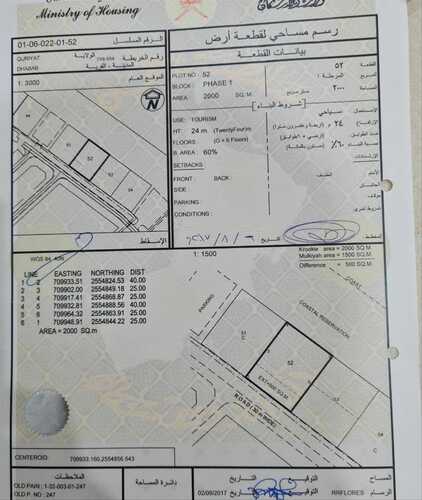 Ministry of Housing
01-06-022-01-52
الرقم المسلسل
QURIYAT
الولاية
709-554
رقم الخريطة
DHABAB
المدينة - القرية
1: 3000
الموقع العام
رسم مساحي لقطعة أرض
بيانات القطعة
PLOT NO : 52
٥٢
القطعة
BLOCK : PHASE 1
المرحلة ١
المربع
AREA : 2000 SQ.M.
٢٠٠٠
المساحة
شروط البناء
USE : TOURISM
سياحي
الاستعمال
HT : 24 m. (TwentyFour)m.
٢٤ م
FLOORS (G + 6 Floors)
عدد الطوابق
B. AREA 60%
٦٠٪
نسبة البناء
SETBACKS
الارتدادات
FRONT : BACK :
الخلف
SIDE
PARKING :
CONDITIONS :
شروط أخرى
التاريخ
الإسقاط
WGS 84 40N
1 : 1500
Krookie area = 2000 SQ.M
Mulkiyah area = 1500 SQ.M
Difference = 500 SQ.M
LINE EASTING NORTHING DIST
1 2 709933.51 2554824.53 40.00
2 3 709902.00 2554849.18 25.00
3 4 709917.41 2554868.87 25.00
4 5 709932.81 2554888.56 40.00
5 6 709964.32 2554863.91 25.00
6 1 709948.91 2554844.22 25.00
AREA = 2000 SQ.m
COASTAL RESERVATION
PARKING
52
EXT=500 SQ.M
ROAD (30 m WIDE)
54
C
CENTEROID: 709933.160,2554856.543
الملاحظات
دائرة المساحة
التاريخ
التوقيع
المساح
OLD P.NO : 247
02/08/2017
RRFLORES
الرسام